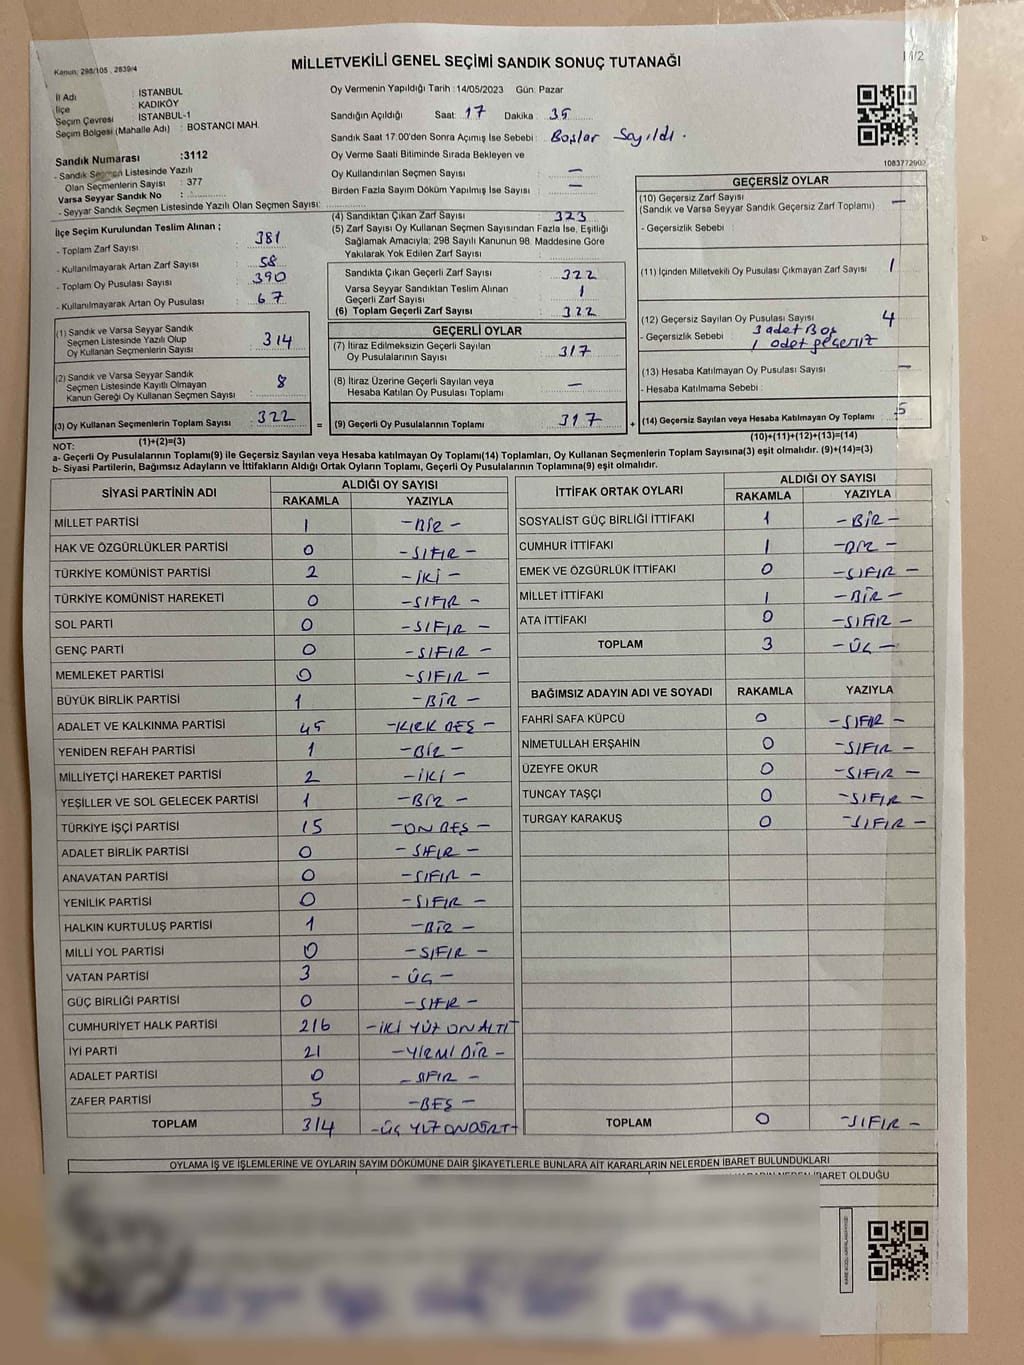 Kanun: 298/105 , 2839/4
14/2
MİLLETVEKİLİ GENEL SEÇİMİ SANDIK SONUÇ TUTANAĞI
İl Adı : İSTANBUL
İlçe : KADIKÖY
Seçim Çevresi : İSTANBUL-1
Seçim Bölgesi (Mahalle Adı) : BOSTANCI MAH.
Sandık Numarası :3112
- Sandık Seçmen Listesinde Yazılı
Olan Seçmenlerin Sayısı : 377
Varsa Seyyar Sandık No :
- Seyyar Sandık Seçmen Listesinde Yazılı Olan Seçmen Sayısı:
Oy Vermenin Yapıldığı Tarih :14/05/2023 Gün: Pazar
Sandığın Açıldığı Saat: 17 Dakika : 35
Sandık Saat 17:00'den Sonra Açımış İse Sebebi : Boşlar Sayıldı.
Oy Verme Saati Bitiminde Sırada Bekleyen ve
Oy Kullandırılan Seçmen Sayısı : —
Birden Fazla Sayım Döküm Yapılmış İse Sayısı : —
1083772902
İlçe Seçim Kurulundan Teslim Alınan ;
- Toplam Zarf Sayısı : 381
- Kullanılmayarak Artan Zarf Sayısı : 58
- Toplam Oy Pusulası Sayısı : 390
- Kullanılmayarak Artan Oy Pusulası : 67
(1) Sandık ve Varsa Seyyar Sandık
Seçmen Listesinde Yazılı Olup
Oy Kullanan Seçmenlerin Sayısı : 314
(2) Sandık ve Varsa Seyyar Sandık
Seçmen Listesinde Kayıtlı Olmayan
Kanun Gereği Oy Kullanan Seçmen Sayısı : 8
(3) Oy Kullanan Seçmenlerin Toplam Sayısı : 322
(1)+(2)=(3)
(4) Sandıktan Çıkan Zarf Sayısı : 323
(5) Zarf Sayısı Oy Kullanan Seçmen Sayısından Fazla İse, Eşitliği
Sağlamak Amacıyla; 298 Sayılı Kanunun 98. Maddesine Göre
Yakılarak Yok Edilen Zarf Sayısı :
Sandıkta Çıkan Geçerli Zarf Sayısı : 322
Varsa Seyyar Sandıktan Teslim Alınan
Geçerli Zarf Sayısı : 1
(6) Toplam Geçerli Zarf Sayısı : 322
GEÇERLİ OYLAR
(7) İtiraz Edilmeksizin Geçerli Sayılan
Oy Pusulalarının Sayısı : 317
(8) İtiraz Üzerine Geçerli Sayılan veya
Hesaba Katılan Oy Pusulası Toplamı : —
= (9) Geçerli Oy Pusulalarının Toplamı : 317
GEÇERSİZ OYLAR
(10) Geçersiz Zarf Sayısı
(Sandık ve Varsa Seyyar Sandık Geçersiz Zarf Toplamı) : —
- Geçersizlik Sebebi :
(11) İçinden Milletvekili Oy Pusulası Çıkmayan Zarf Sayısı : 1
(12) Geçersiz Sayılan Oy Pusulası Sayısı : 4
- Geçersizlik Sebebi : 3 adet Boş
1 adet geçersiz
(13) Hesaba Katılmayan Oy Pusulası Sayısı : —
- Hesaba Katılmama Sebebi :
+ (14) Geçersiz Sayılan veya Hesaba Katılmayan Oy Toplamı : 5
(10)+(11)+(12)+(13)=(14)
NOT:
a- Geçerli Oy Pusulasının Toplamı(9) ile Geçersiz Sayılan veya Hesaba Katılmayan Oy Toplamı(14) Toplamları, Oy Kullanan Seçmenlerin Toplam Sayısına(3) eşit olmalıdır. (9)+(14)=(3)
b- Siyasi Partilerin, Bağımsız Adayların ve İttifakların Aldığı Ortak Oyların Toplamı, Geçerli Oy Pusulalarının Toplamına(9) eşit olmalıdır.
SİYASİ PARTİNİN ADI ALDIĞI OY SAYISI
RAKAMLA YAZIYLA
MİLLET PARTİSİ 1 -BİR-
HAK VE ÖZGÜRLÜKLER PARTİSİ 0 -SIFIR-
TÜRKİYE KOMÜNİST PARTİSİ 2 -İKİ-
TÜRKİYE KOMÜNİST HAREKETİ 0 -SIFIR-
SOL PARTİ 0 -SIFIR-
GENÇ PARTİ 0 -SIFIR-
MEMLEKET PARTİSİ 0 -SIFIR-
BÜYÜK BİRLİK PARTİSİ 1 -BİR-
ADALET VE KALKINMA PARTİSİ 45 -KIRK BEŞ-
YENİDEN REFAH PARTİSİ 1 -BİR-
MİLLİYETÇİ HAREKET PARTİSİ 2 -İKİ-
YEŞİLLER VE SOL GELECEK PARTİSİ 1 -BİR-
TÜRKİYE İŞÇİ PARTİSİ 15 -ON BEŞ-
ADALET BİRLİK PARTİSİ 0 -SIFIR-
ANAVATAN PARTİSİ 0 -SIFIR-
YENİLİK PARTİSİ 0 -SIFIR-
HALKIN KURTULUŞ PARTİSİ 1 -BİR-
MİLLİ YOL PARTİSİ 0 -SIFIR-
VATAN PARTİSİ 3 -ÜÇ-
GÜÇ BİRLİĞİ PARTİSİ 0 -SIFIR-
CUMHURİYET HALK PARTİSİ 216 -İKİ YÜZ ON ALTI
İYİ PARTİ 21 -YİRMİ BİR-
ADALET PARTİSİ 0 -SIFIR-
ZAFER PARTİSİ 5 -BEŞ-
TOPLAM 314 -ÜÇ YÜZ ONDÖRT-
İTTİFAK ORTAK OYLARI ALDIĞI OY SAYISI
RAKAMLA YAZIYLA
SOSYALİST GÜÇ BİRLİĞİ İTTİFAKI 1 -BİR-
CUMHUR İTTİFAKI 1 -BİR-
EMEK VE ÖZGÜRLÜK İTTİFAKI 0 -SIFIR-
MİLLET İTTİFAKI 1 -BİR-
ATA İTTİFAKI 0 -SIFIR-
TOPLAM 3 -ÜÇ-
BAĞIMSIZ ADAYIN ADI VE SOYADI RAKAMLA YAZIYLA
FAHRİ SAFA KÜPCÜ 0 -SIFIR-
NİMETULLAH ERŞAHİN 0 -SIFIR-
ÜZEYFE OKUR 0 -SIFIR-
TUNCAY TAŞÇI 0 -SIFIR-
TURGAY KARAKUŞ 0 -SIFIR-
TOPLAM 0 -SIFIR-
OYLAMA İŞ VE İŞLEMLERİNE VE OYLARIN SAYIM DÖKÜMÜNE DAİR ŞİKAYETLERLE BUNLARA AİT KARARLARIN NELERDEN İBARET BULUNDUKLARI
İBARET OLDUĞU